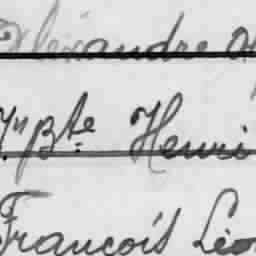 Alexandre
Jn Bte Henri
François Léo